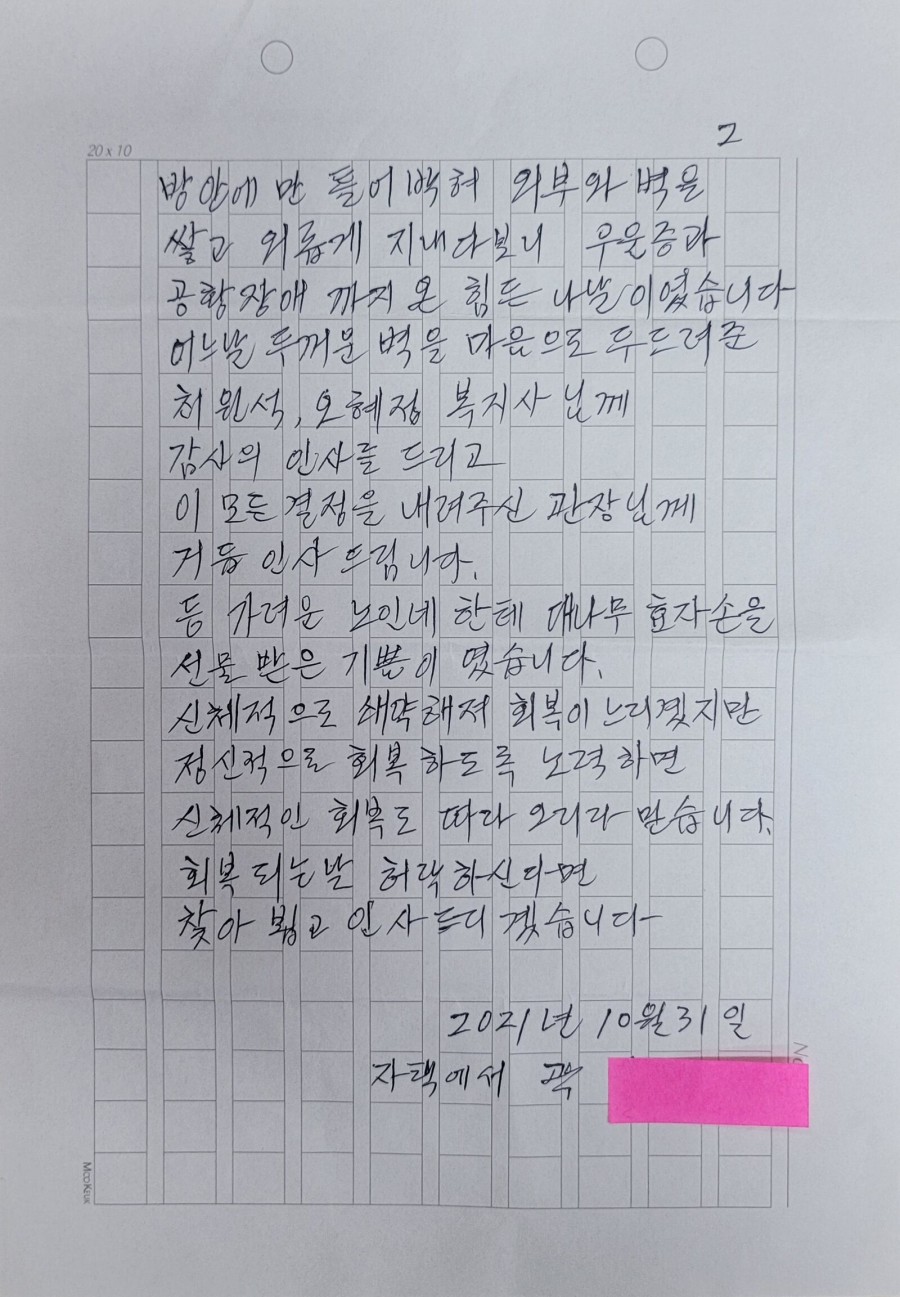 2
20 x 10
방안에만 틀어박혀 외부와 벽을
쌓고 외롭게 지내다보니 우울증과
공황장애 까지 온 힘든 나날이였습니다
어느날 두꺼운 벽을 마음으로 두드려준
최원석, 오혜정 복지사님께
감사의 인사를 드리고
이 모든결정을 내려주신 관장님께
거듭 인사 드립니다.
등 가려운 노인네 한테 대나무 효자손을
선물 받은 기쁨이 였습니다.
신체적으로 쇄약해져 회복이 느리겠지만
정신적으로 회복 하도록 노력하면
신체적인 회복도 따라 오리라 믿습니다.
회복 되는날 허락하신다면
찾아 뵙고 인사 드리 겠습니다
2021년 10월31일
자택에서 곽